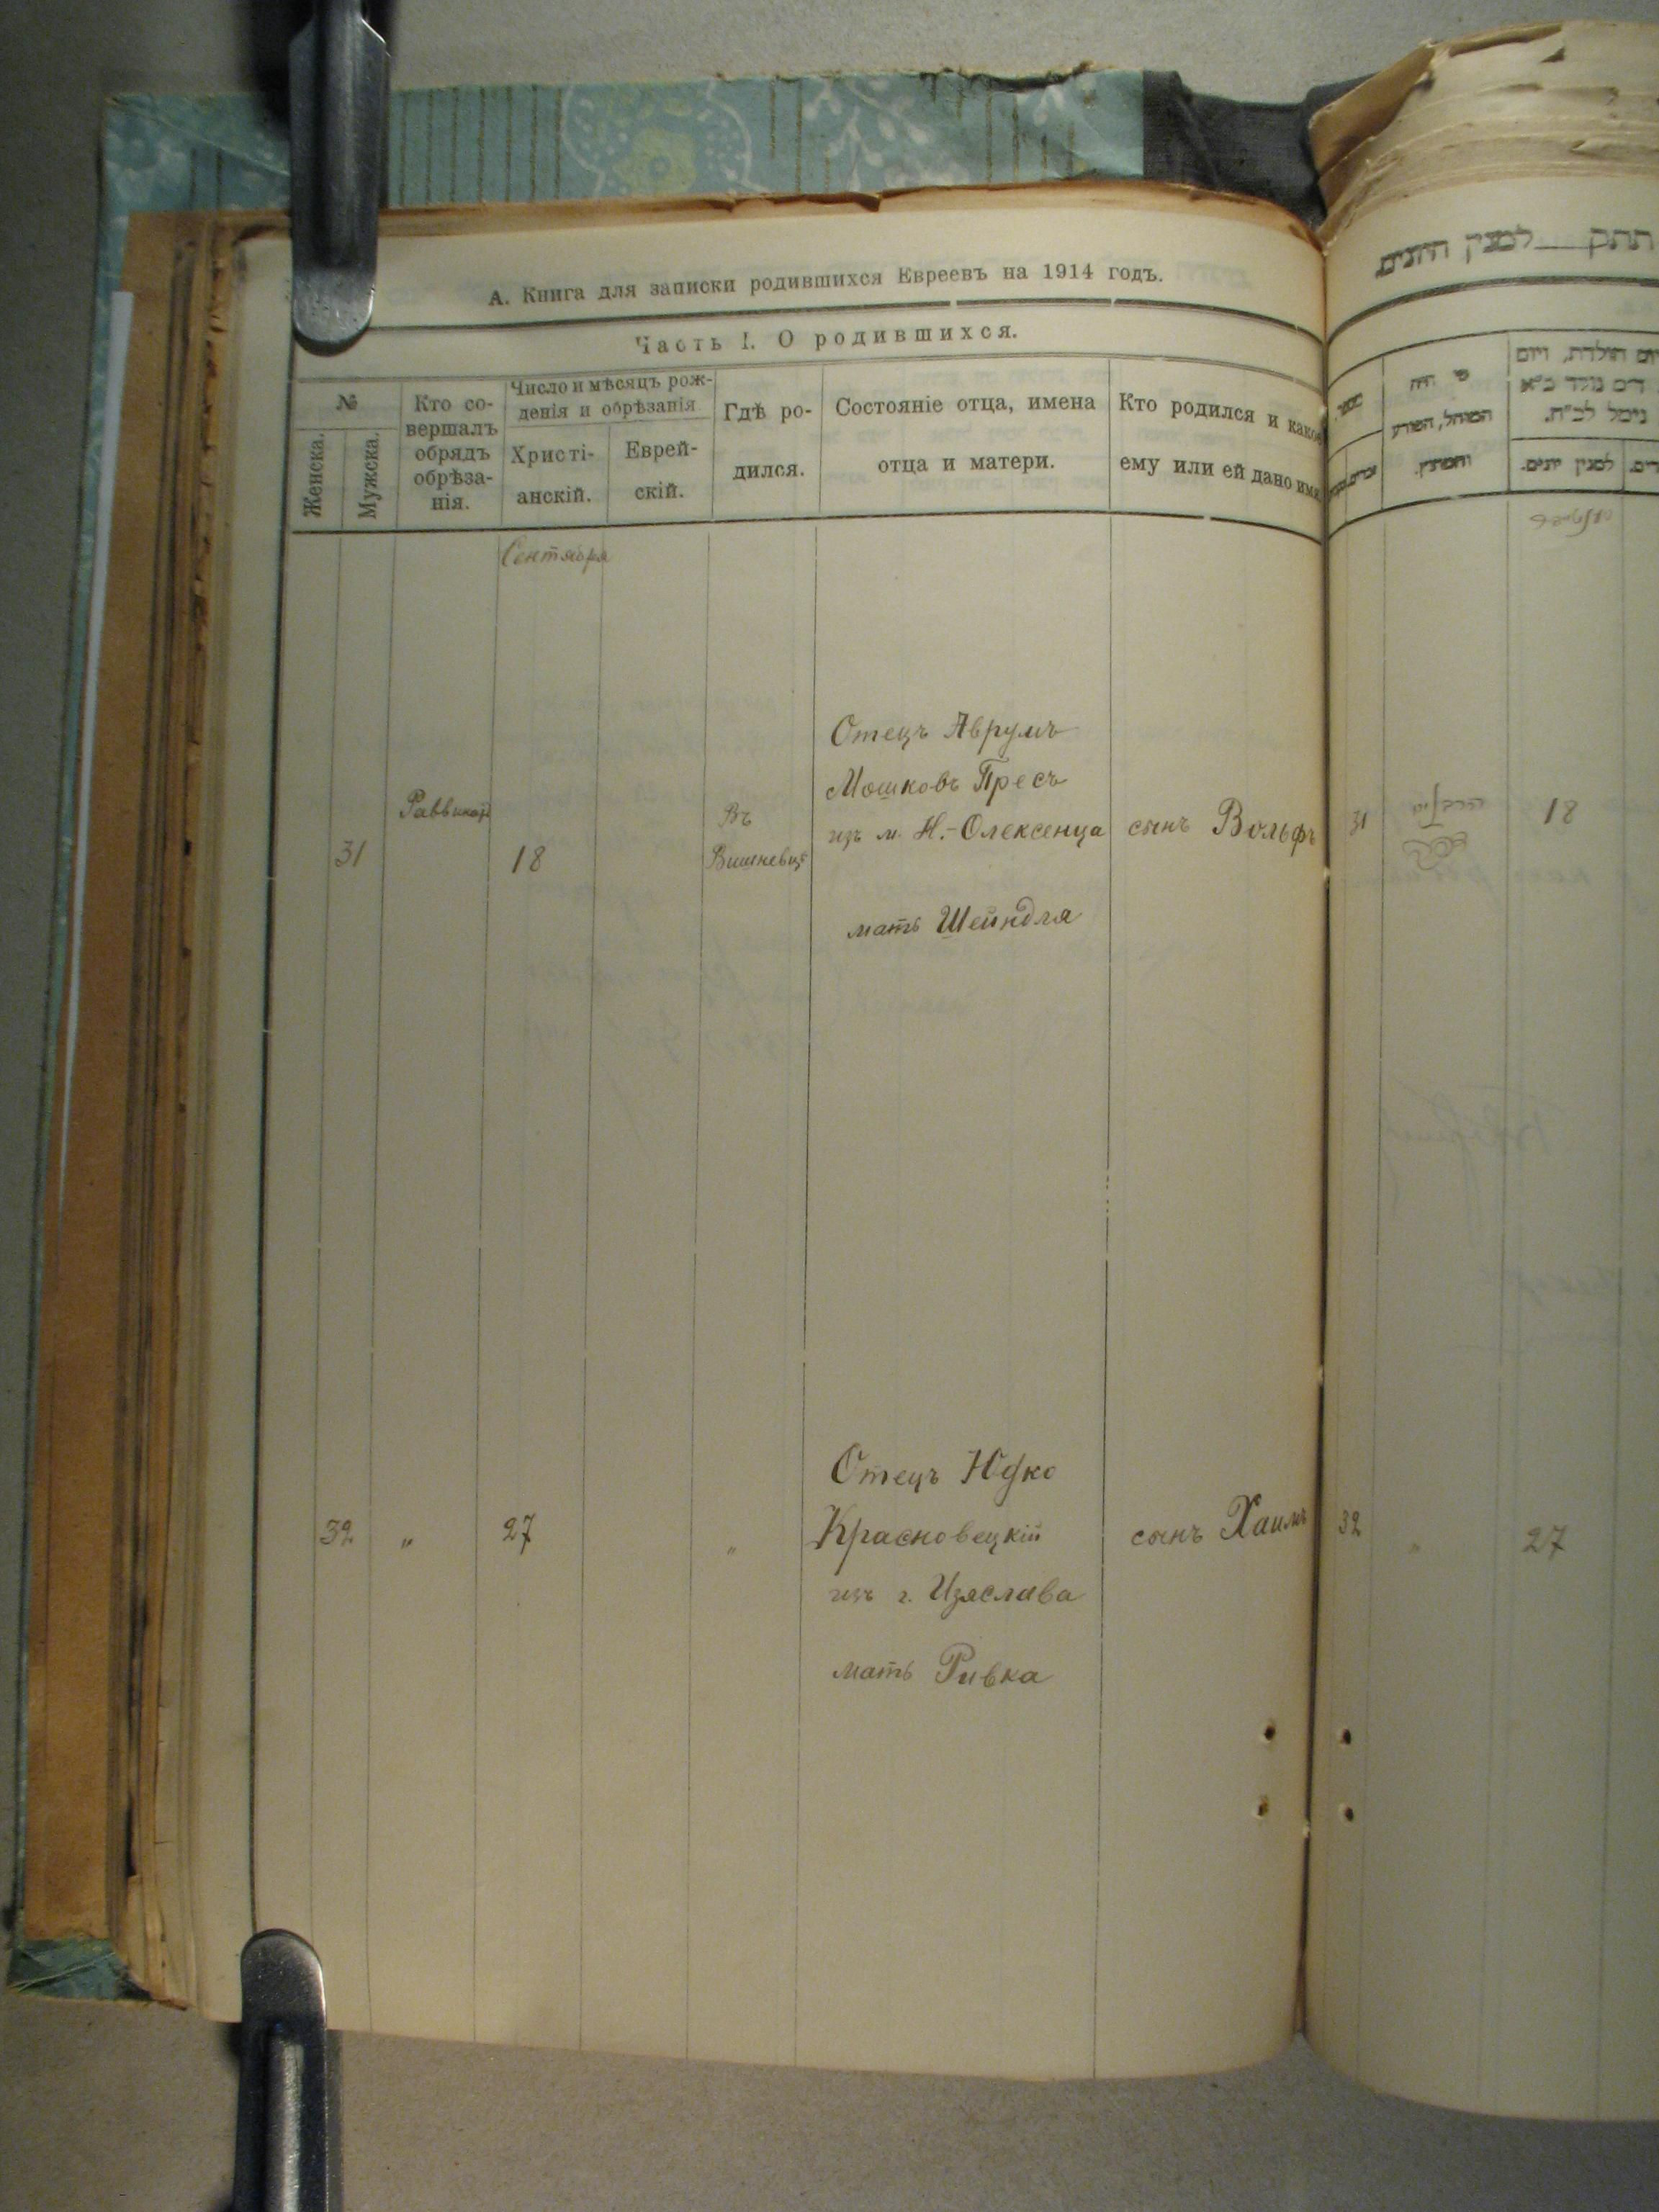 А. Книга для записки родившихся Евреевъ на 1914 годъ.
Часть I. О родившихся.
№
Женска.
Мужска.
Кто со-
вершалъ
обрядъ
обрѣза-
нія.
Число и мѣсяцъ рож-
денія и обрѣзанія
Христі-
анскій.
Еврей-
скій.
Гдѣ ро-
дился.
Состояніе отца, имена
отца и матери.
Кто родился и какое
ему или ей дано имя
Сентября
31
18
Въ
Отецъ Аврумъ
Мошковъ Пресъ
изъ м. Н.-Олексенца
мать Шейндля
сынъ Вольфъ
32
"
27
"
Отецъ Юфко
Красновецкій
изъ г. Изяслава
мать Ривка
сынъ Хаимъ
למנין היונים
מי היה
המוהל, הפורע
והמוצץ.
למנין יונים.
31
18
32
"
27